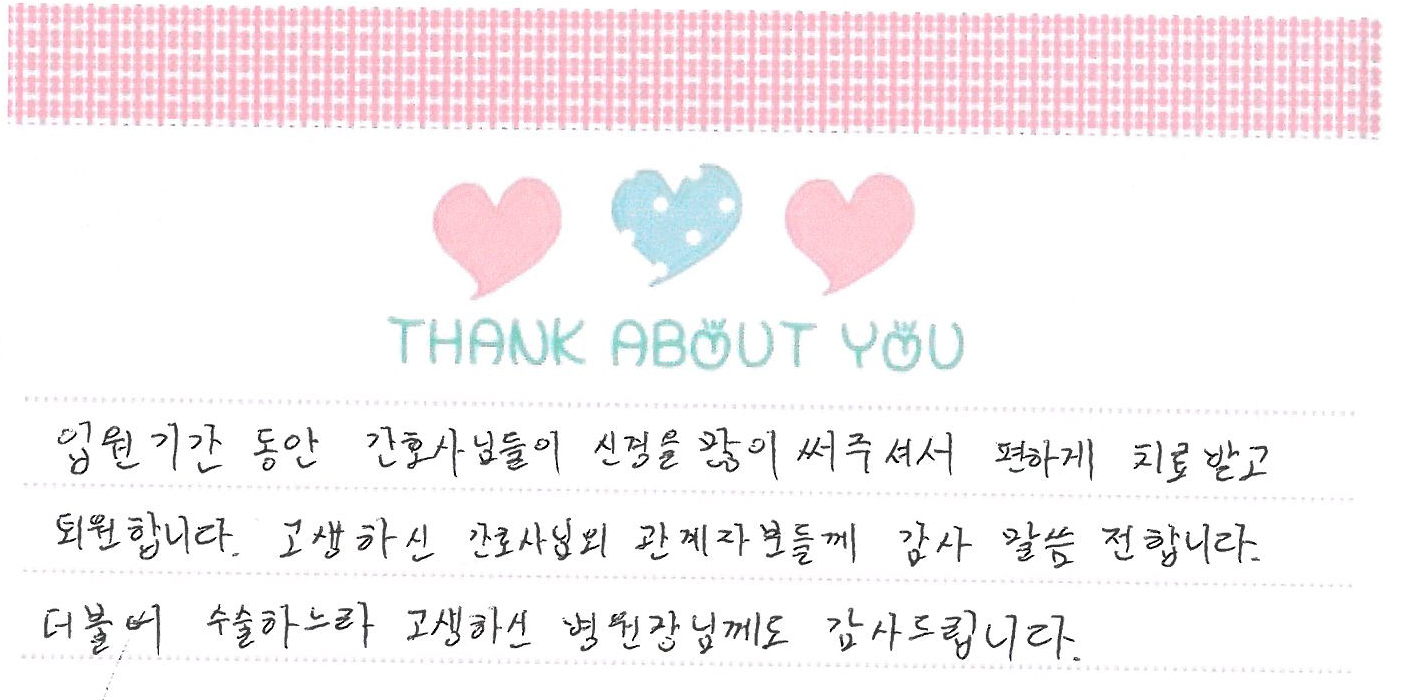 THANK ABOUT YOU
입원기간 동안 간호사님들이 신경을 많이 써주셔서 편하게 치료받고
퇴원합니다. 고생하신 간호사님외 관계자분들께 감사 말씀 전합니다.
더불어 수술하느라 고생하신 병원장님께도 감사드립니다.